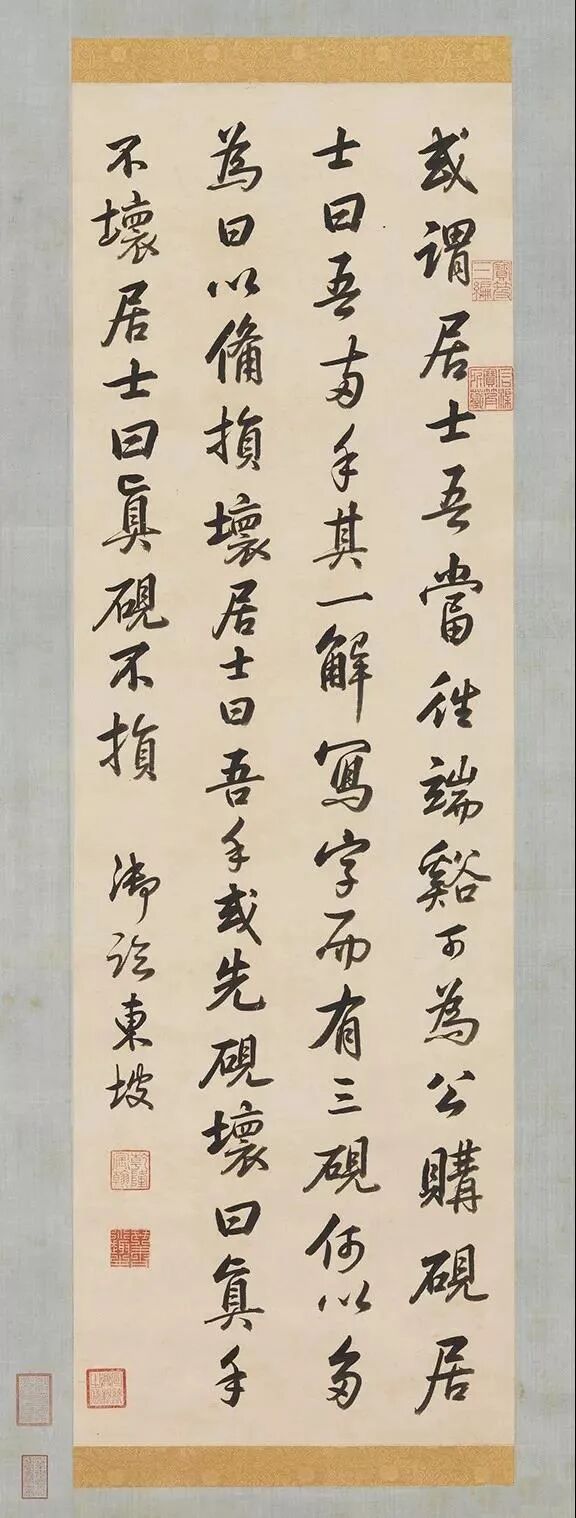 或謂居士吾當往端谿可為公購硯居
士曰吾兩手其一解寫字而有三硯何以多
為曰以備損壞居士曰吾手或先硯壞曰真手
不壞居士曰真硯不損 御臨東坡
乾隆宸翰